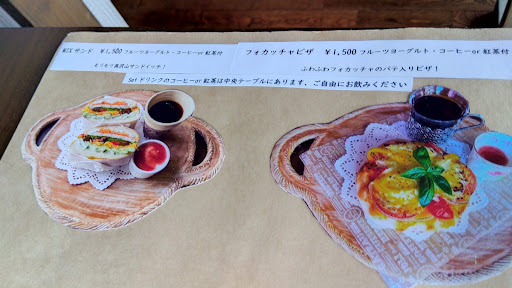 MIXサンド ¥1,500 フルーツヨーグルト・コーヒーor 紅茶付
もりもり具沢山サンドイッチ！
フォカッチャピザ ¥1,500 フルーツヨーグルト・コーヒーor 紅茶付
ふわふわフォカッチャのパテ入りピザ！
Setドリンクのコーヒーor 紅茶は中央テーブルにあります、ご自由にお飲みください